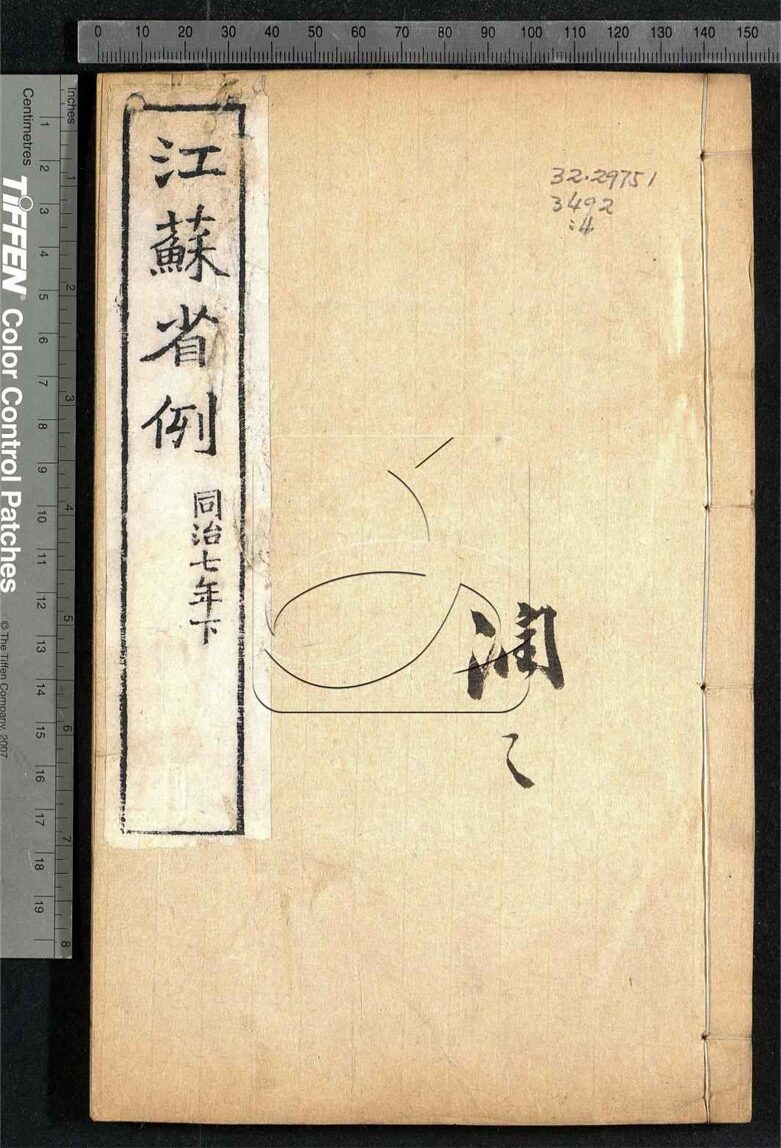 江蘇省例
同治七年下
32.29751
3492
:4
潤
0 10 20 30 40 50 60 70 80 90 100 110 120 130 140 150
Inches
1 2 3 4 5 6 7 8
Centimetres
1 2 3 4 5 6 7 8 9 10 11 12 13 14 15 16 17 18 19
TIFFEN Color Control Patches
© The Tiffen Company, 2007